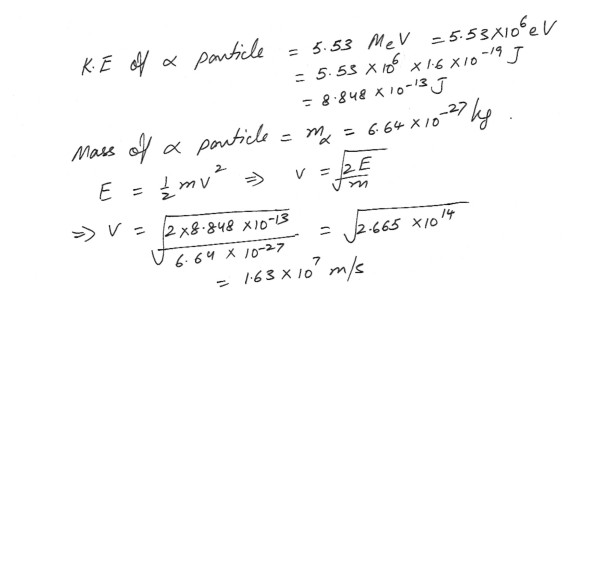 K.E of α particle = 5.53 MeV = 5.53×10⁶eV
= 5.53 × 10⁶ × 1.6 × 10⁻¹⁹ J
= 8.848 × 10⁻¹³ J
Mass of α particle = m_α = 6.64 × 10⁻²⁷ kg.
E = ½ mv² ⇒ v = √(2E/m)
⇒ v = √(2×8.848 ×10⁻¹³ / 6.64 × 10⁻²⁷) = √(2.665 ×10¹⁴)
= 1.63 × 10⁷ m/s